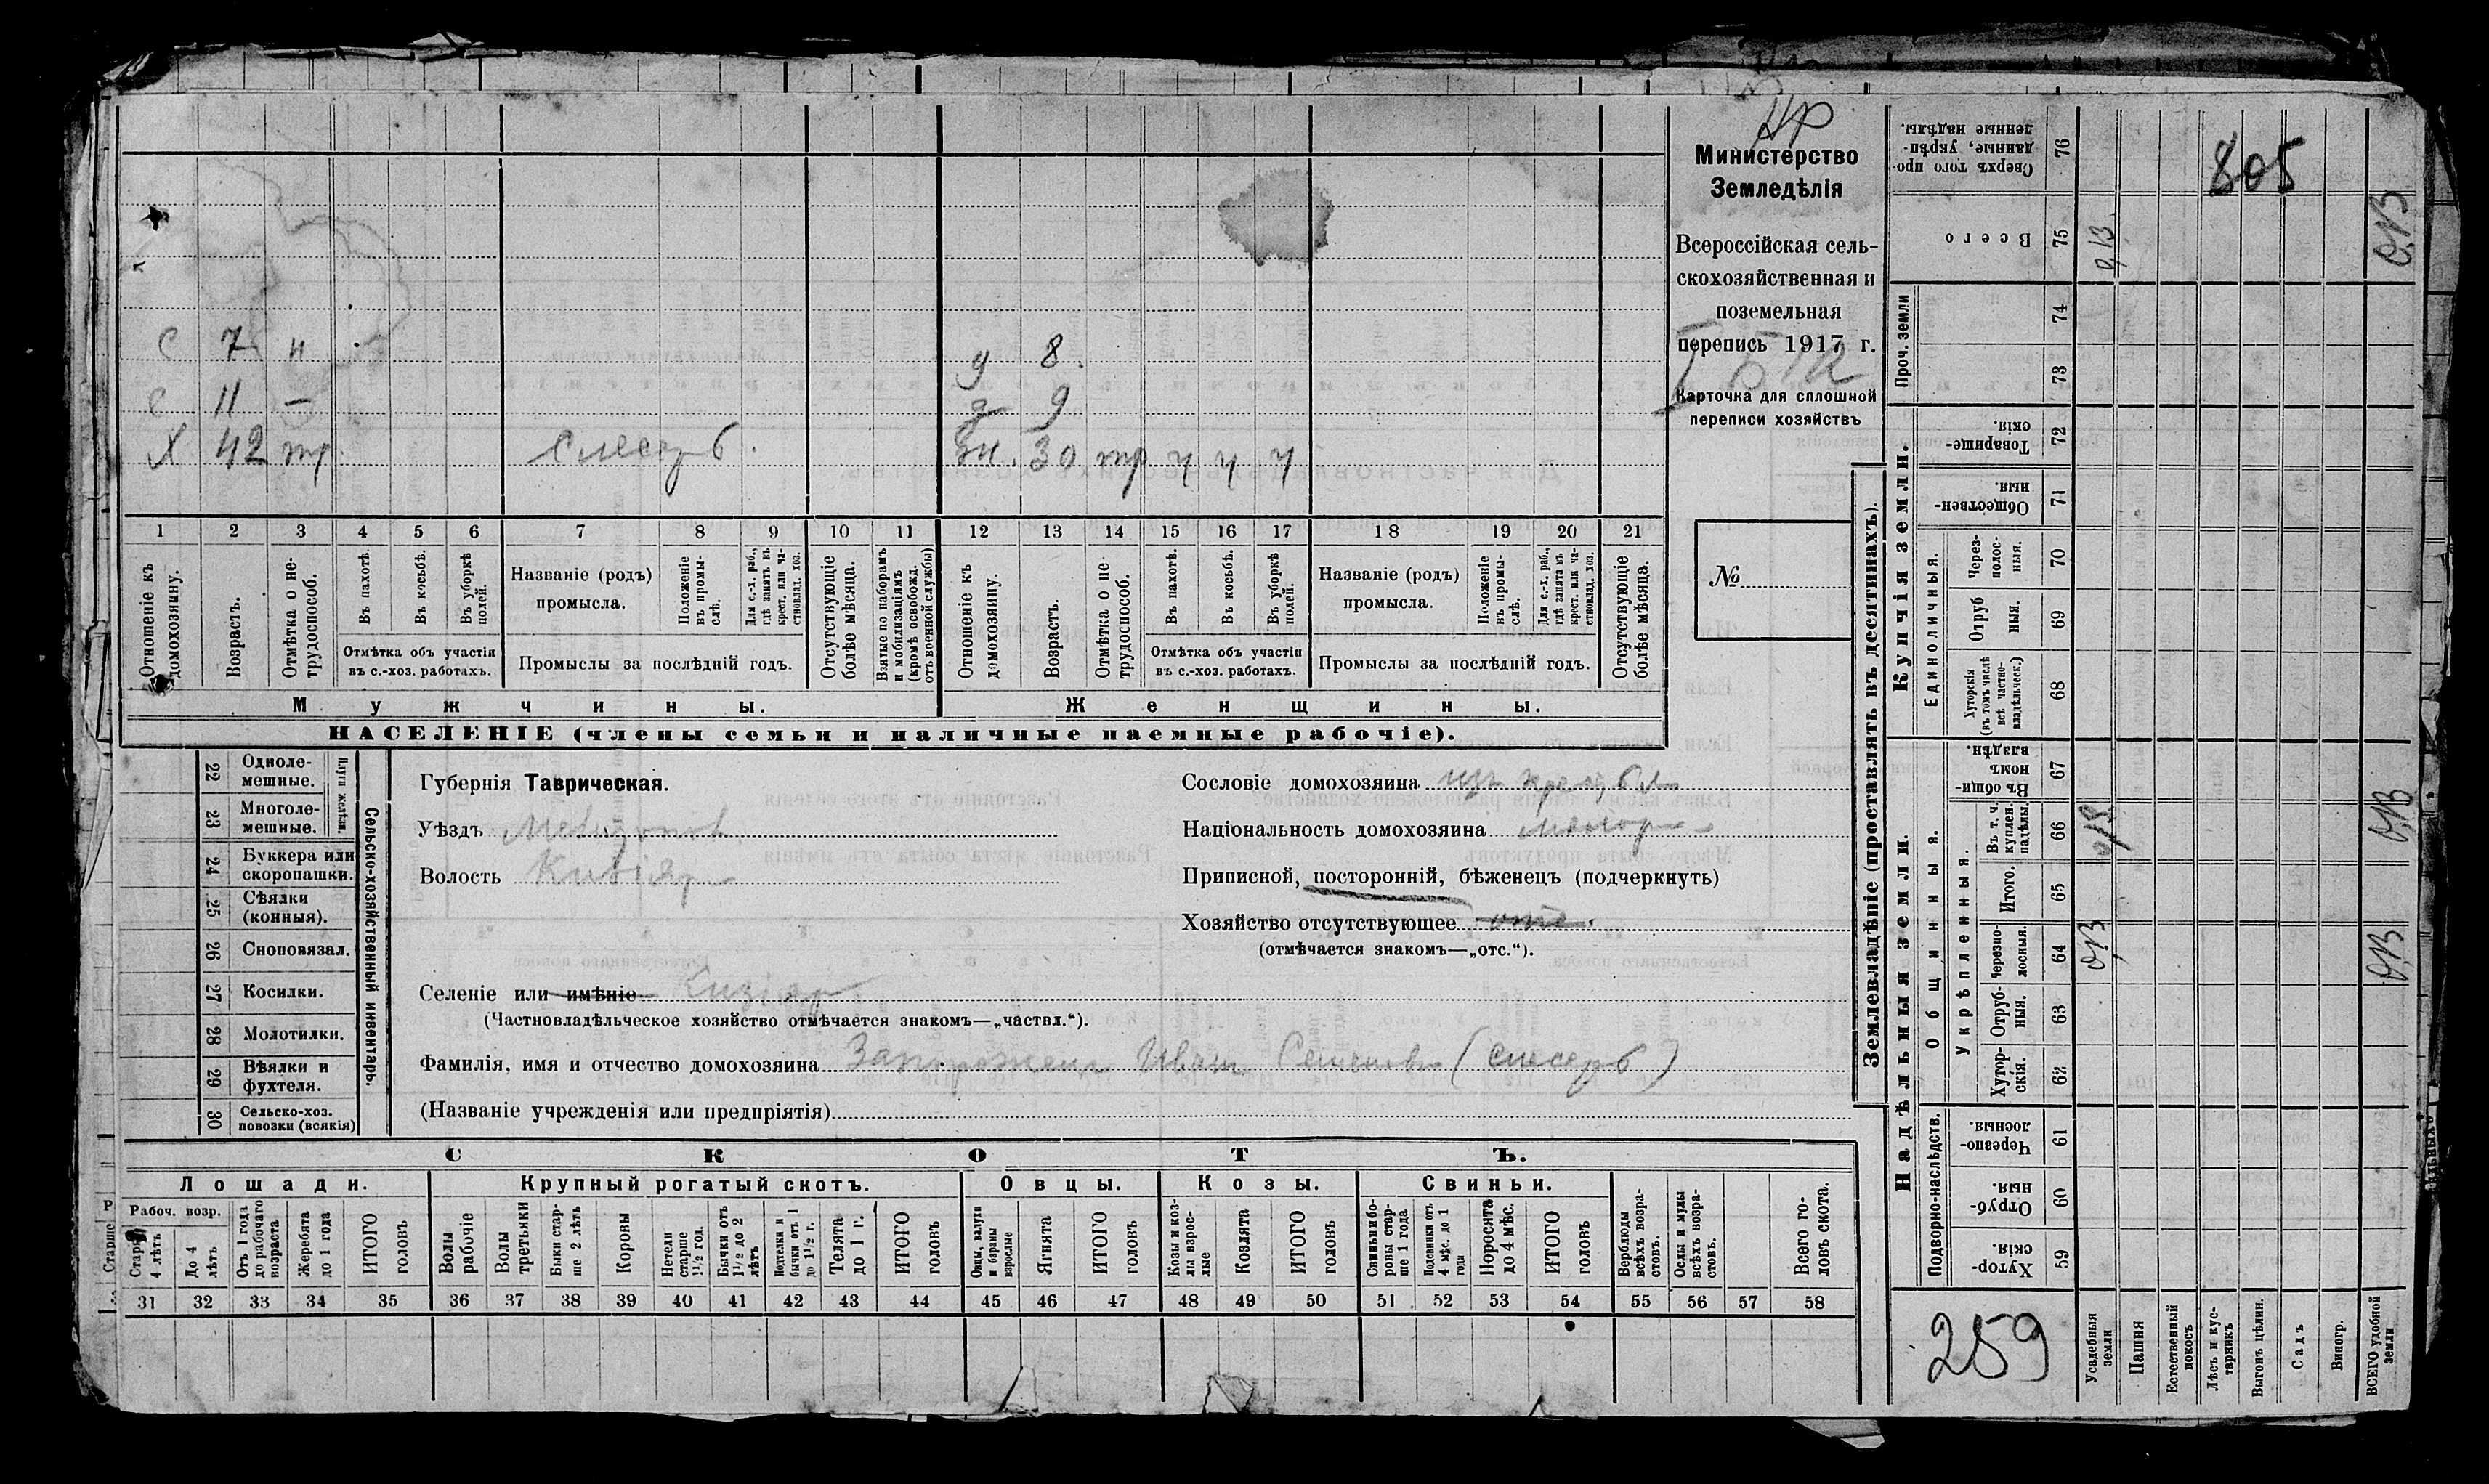 Министерство
Земледѣлія
Всероссійская сель-
скохозяйственная и
поземельная
перепись 1917 г.
Карточка для сплошной
переписи хозяйствъ
№
805
с 7 н
у 8
с 11 –
д 9
Х 42 тр слесарь
жн. 30 тр ч ч ч
1 2 3 4 5 6 7 8 9 10 11 12 13 14 15 16 17 18 19 20 21
Отношеніе къ домохозяину.
Возрастъ.
Отмѣтка о не-трудоспособ.
Въ пахотѣ.
Въ косьбѣ.
Въ уборкѣ полей.
Отмѣтка объ участіи
въ с.-хоз. работахъ.
Названіе (родъ)
промысла.
Положеніе въ промы-слѣ.
Для с.-х. раб., гдѣ занятъ въ крест. или ча-стновлад. хоз.
Промыслы за послѣдній годъ.
Отсутствующіе болѣе мѣсяца.
Взятые по наборамъ и мобилизаціямъ (кромѣ освобожд. отъ военной службы)
Отношеніе къ домохозяину.
Возрастъ.
Отмѣтка о не-трудоспособ.
Въ пахотѣ.
Въ косьбѣ.
Въ уборкѣ полей.
Отмѣтка объ участіи
въ с.-хоз. работахъ.
Названіе (родъ)
промысла.
Положеніе въ промы-слѣ.
Для с.-х. раб., гдѣ занятъ въ крест. или ча-стновлад. хоз.
Промыслы за послѣдній годъ.
Отсутствующіе болѣе мѣсяца.
Мужчины.
Женщины.
НАСЕЛЕНІЕ (члены семьи и наличные наемные рабочіе).
22 Одноле-мешные.
23 Многоле-мешные.
Плуги желѣзн.
24 Буккера или скоропашки.
25 Сѣялки (конныя).
26 Сноповязал.
27 Косилки.
28 Молотилки.
29 Вѣялки и фухтеля.
30 Сельско-хоз. повозки (всякія)
Сельско-хозяйственный инвентарь.
Губернія Таврическая.
Уѣздъ Мелитопол
Волость Кизіяр
Сословіе домохозяина из крестьян
Національность домохозяина малор
Приписной, посторонній, бѣженецъ (подчеркнуть)
Хозяйство отсутствующее отс
(отмѣчается знакомъ—„отс.“).
Селеніе или имѣніе Кизіяр
(Частновладѣльческое хозяйство отмѣчается знакомъ—„частвл.“).
Фамилія, имя и отчество домохозяина Запорожец Иван Семенов (слесарь)
(Названіе учрежденія или предпріятія)
СКОТЪ.
Лошади.
Крупный рогатый скотъ.
Овцы.
Козы.
Свиньи.
Рабоч. возр.
Старше 4 лѣтъ
До 4 лѣтъ
Отъ 1 года до рабочаго возраста
Жеребята до 1 года
ИТОГО головъ
Волы рабочіе
Волы третьяки
Быки стар-ше 2 лѣтъ
Коровы
Нетели старше 1½ год.
Бычки отъ 1½ до 2 лѣтъ
Подтелки и бычки отъ 1 до 1½ г.
Телята до 1 г.
ИТОГО головъ
Овцы, валухи и бараны взрослые
Ягнята
ИТОГО головъ
Козы и коз-лы взрос-лые
Козлята
ИТОГО головъ
Свиньи и бо-ровы стар-ше 1 года
Подсвинки отъ 4 мѣс. до 1 года
Поросята до 4 мѣс.
ИТОГО головъ
Верблюды всѣхъ возра-стовъ.
Ослы и мулы всѣхъ возра-стовъ.
Всего го-ловъ скота.
31 32 33 34 35 36 37 38 39 40 41 42 43 44 45 46 47 48 49 50 51 52 53 54 55 56 57 58
Землевладѣніе (проставлять въ десятинахъ).
Надѣльныя земли.
Купчія земли.
Проч. земли
Подворно-наслѣдств.
Общинныя.
Укрѣпленныя.
Единоличныя.
Сверхъ того про-данные, укрѣп-ленные надѣлы. 76
Всего 75 0,13
74
73
Товарище-скія. 72
Обществен-ныя. 71
Через-полос-ныя. 70
Отруб ныя. 69
Хуторскія (въ томъ числѣ всѣ частно-владѣльческ.) 68
Въ общин-номъ владѣн. 67
Въ т. ч. куплен. надѣлы. 66
Итого. 65
Черезпо-лосныя. 64 0,13
Отруб-ныя. 63
Хутор-скія. 62
Черезпо-лосныя 61
Отруб-ныя. 60
Хутор-скія. 59
0,13
0,13
0,13
259
Усадебныя земли
Пашня
Естественный покосъ
Лѣсъ и кус-тарникъ
Выгонъ цѣлин.
Садъ
Виногр.
ВСЕГО удобной земли